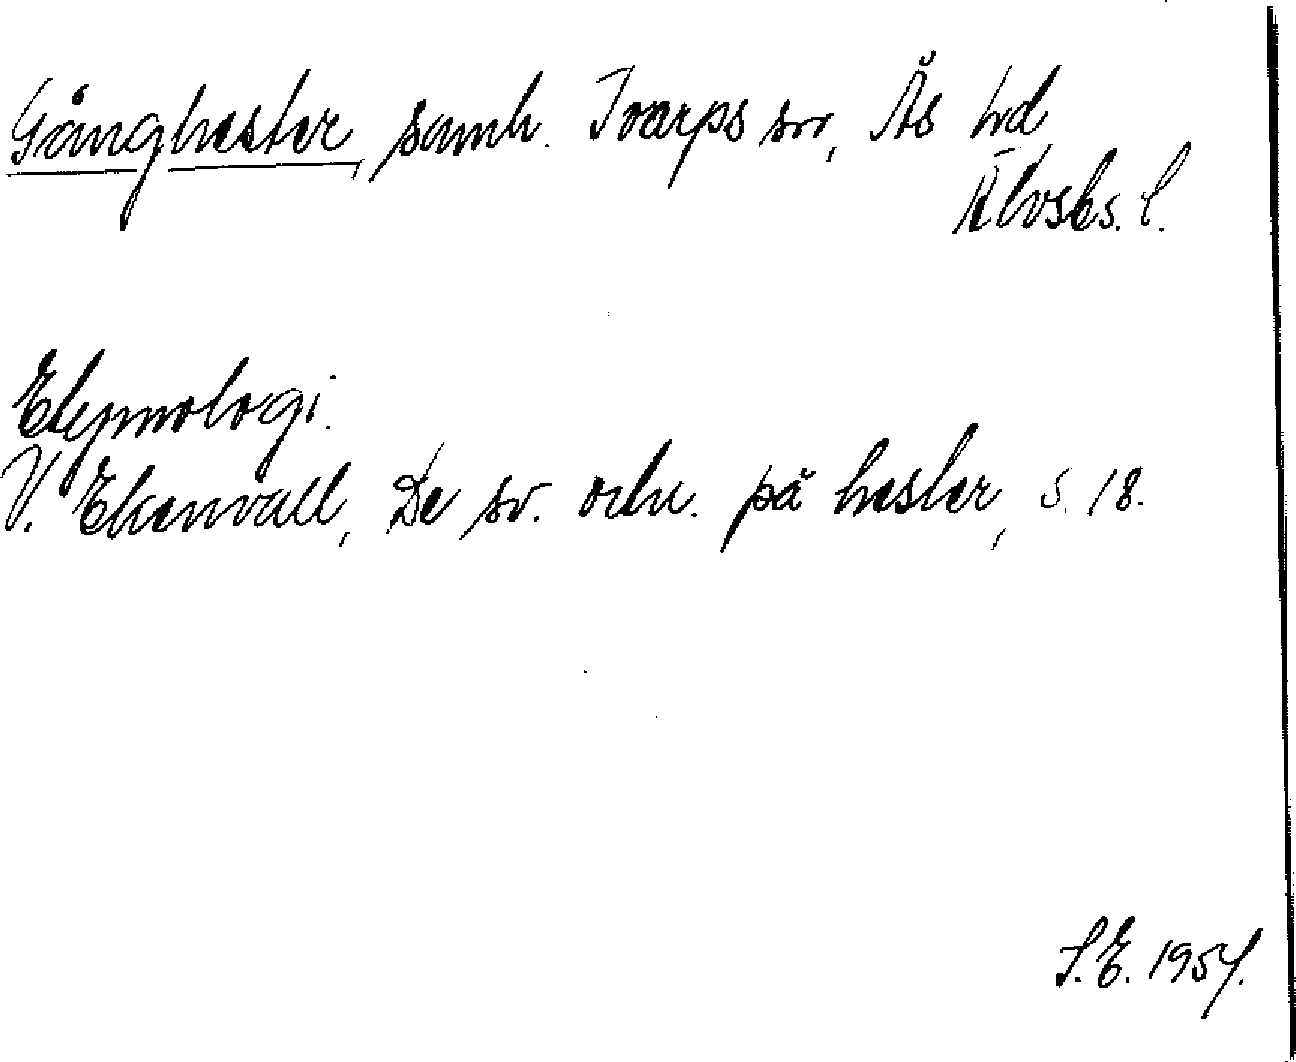 Gånghester, samh. Toarps sn, Ås hd
Älvsbs. l.
Etymologi.
V. Ekenvall, De sv. ortn. på hester, s. 18.
S.E. 1954.